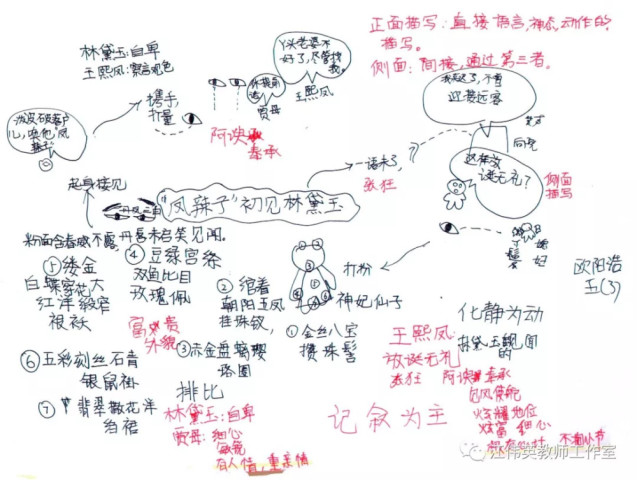 林黛玉:自卑
王熙凤:察言观色
携手,
打量
丫头老婆不
好了,尽管找
我。
王熙凤
贾母
阿谀
奉承
正面描写:直接语言,神态,动作的
描写。
侧面:间接,通过第三者。
我来迟了,不曾
迎接远客
一语未了,
张狂
这样放
诞无礼?
侧面
描写
泼皮破落户
儿,唤他“凤
辣子”
起身接见
丹凤三角
“凤辣子”初见林黛玉
粉面含春威不露,丹唇未启笑先闻。
打扮
神妃仙子
①金丝八宝
攒珠髻
②绾着
朝阳五凤
挂珠钗,
③赤金盘螭璎
珞圈
④豆绿宫绦
双鱼比目
玫瑰佩
⑤缕金
百蝶穿花大
红洋缎窄
裉袄
⑥五彩刻丝石青
银鼠褂
⑦翡翠撒花洋
绉裙
富贵
外貌
排比
林黛玉:自卑
贾母:细心
敏锐
有人情,重亲情
记叙为主
化静为动
欧阳浩
玉(3)
王熙凤:
放诞无礼
张狂 阿谀奉承
炫耀地位
炫富 细心
不拘小节
江伟英教师工作室